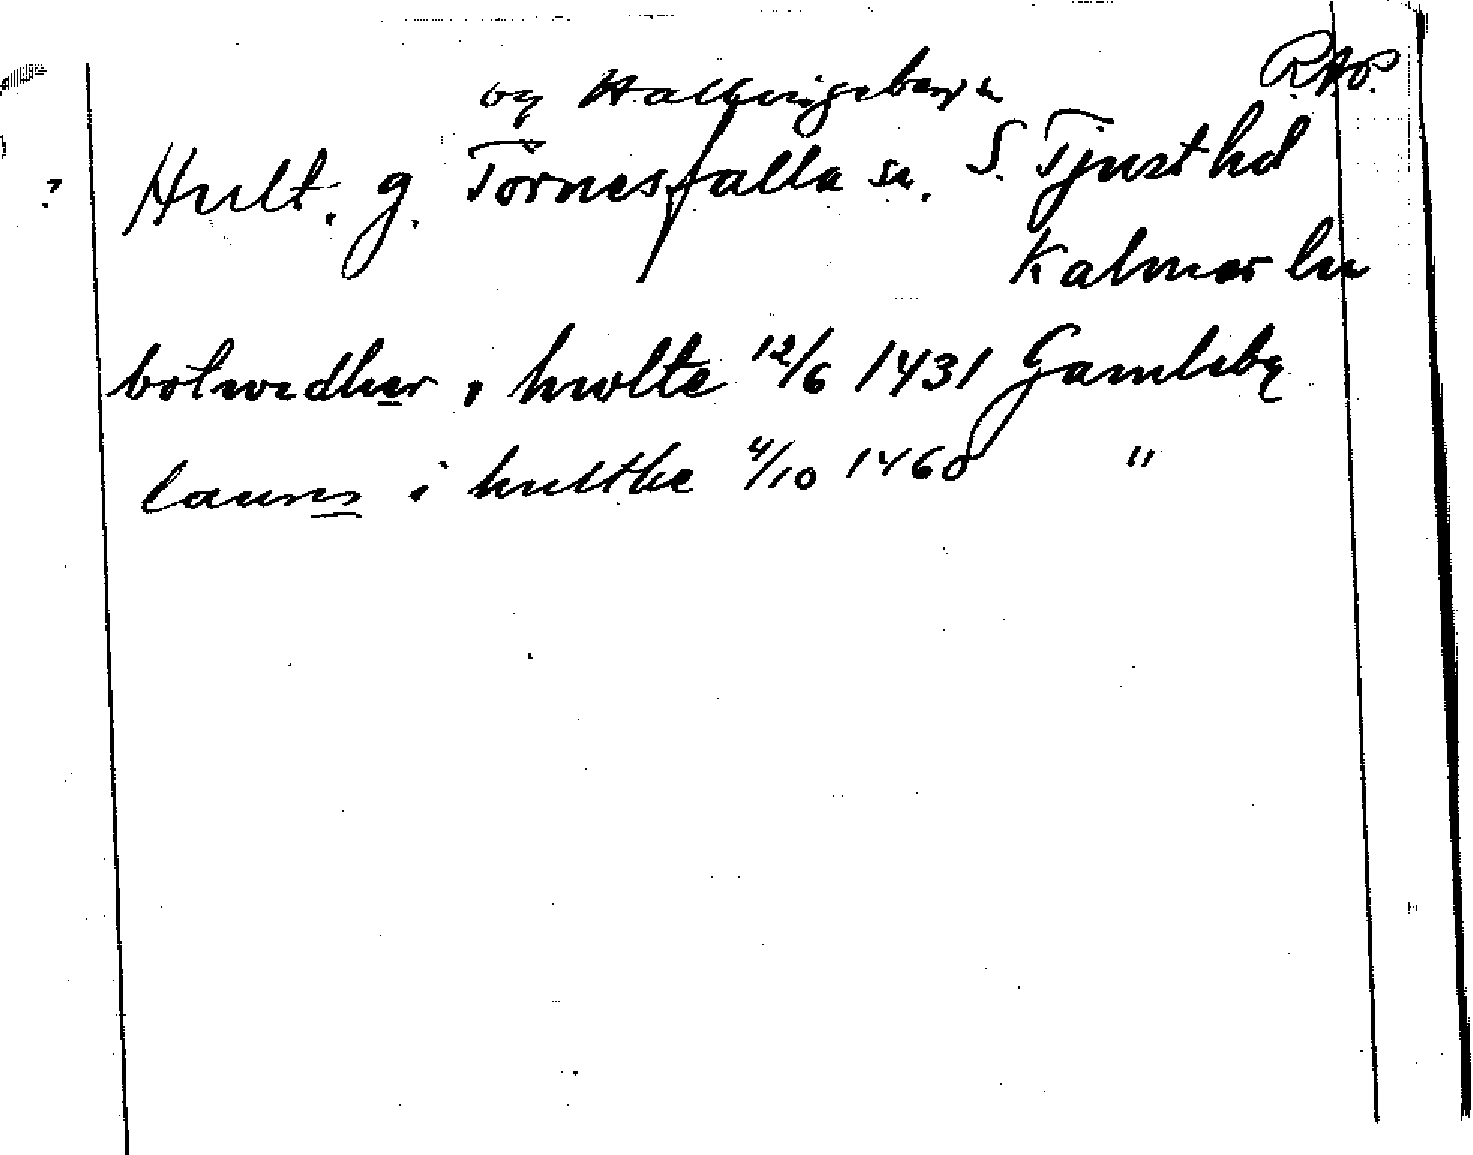 og Hallingeberg sn R.A.P.
? Hult. g. Törnesfalla sn. S. Tjust hd
Kalmar län
botwidher i hwlte 12/6 1431 Gamleby
laurns i hulthe 4/10 1460 "